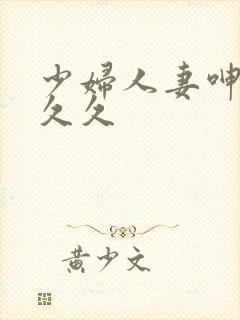 少婦人妻呻
久久
黄少文